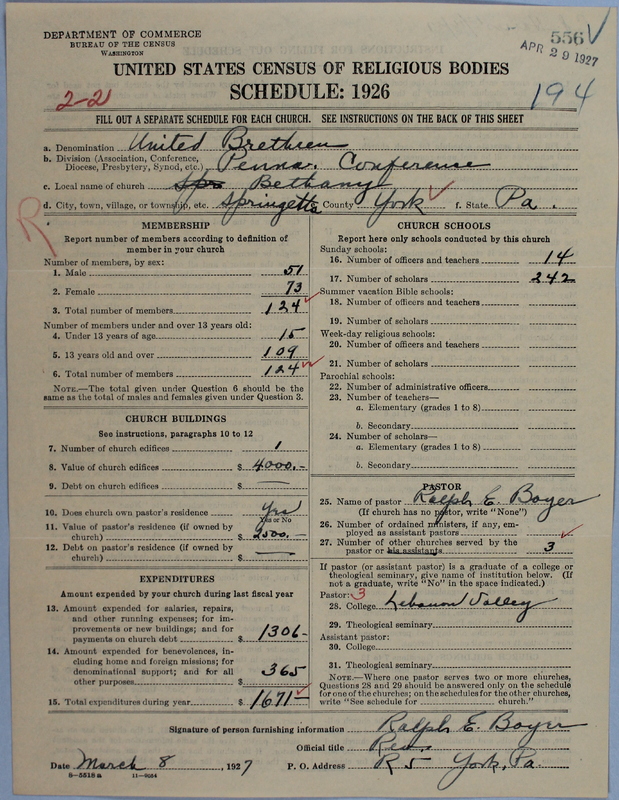 DEPARTMENT OF COMMERCE
BUREAU OF THE CENSUS
WASHINGTON
556
APR 29 1927
UNITED STATES CENSUS OF RELIGIOUS BODIES
SCHEDULE: 1926
2-2
194
FILL OUT A SEPARATE SCHEDULE FOR EACH CHURCH. SEE INSTRUCTIONS ON THE BACK OF THIS SHEET
a. Denomination United Brethren
b. Division (Association, Conference, Diocese, Presbytery, Synod, etc.) Penna. Conference
c. Local name of church Bethany
d. City, town, village, or township, etc. Springetts County York f. State Pa.
R
MEMBERSHIP
Report number of members according to definition of
member in your church
Number of members, by sex:
1. Male 51
2. Female 73
3. Total number of members 124
Number of members under and over 13 years old:
4. Under 13 years of age 15
5. 13 years old and over 109
6. Total number of members 124
NOTE.—The total given under Question 6 should be the
same as the total of males and females given under Question 3.
CHURCH BUILDINGS
See instructions, paragraphs 10 to 12
7. Number of church edifices 1
8. Value of church edifices $ 4000.-
9. Debt on church edifices $ —
10. Does church own pastor's residence Yes
Yes or No
11. Value of pastor's residence (if owned by
church) $ 2500.-
12. Debt on pastor's residence (if owned by
church) $ —
EXPENDITURES
Amount expended by your church during last fiscal year
13. Amount expended for salaries, repairs,
and other running expenses; for im-
provements or new buildings; and for
payments on church debt $ 1306-
14. Amount expended for benevolences, in-
cluding home and foreign missions; for
denominational support; and for all
other purposes $ 365
15. Total expenditures during year $ 1671-
CHURCH SCHOOLS
Report here only schools conducted by this church
Sunday schools:
16. Number of officers and teachers 14
17. Number of scholars 242
Summer vacation Bible schools:
18. Number of officers and teachers
19. Number of scholars
Week-day religious schools:
20. Number of officers and teachers
21. Number of scholars
Parochial schools:
22. Number of administrative officers
23. Number of teachers—
a. Elementary (grades 1 to 8)
b. Secondary
24. Number of scholars—
a. Elementary (grades 1 to 8)
b. Secondary
PASTOR
25. Name of pastor Ralph E. Boyer
(If church has no pastor, write "None")
26. Number of ordained ministers, if any, em-
ployed as assistant pastors
27. Number of other churches served by the
pastor or his assistants 3
If pastor (or assistant pastor) is a graduate of a college or
theological seminary, give name of institution below. (If
not a graduate, write "No" in the space indicated.)
Pastor: 3
28. College Lebanon Valley
29. Theological seminary
Assistant pastor:
30. College
31. Theological seminary
NOTE.—Where one pastor serves two or more churches,
Questions 28 and 29 should be answered only on the schedule
for one of the churches; on the schedules for the other churches,
write "See schedule for church."
Signature of person furnishing information Ralph E. Boyer
Official title Rev.
Date March 8, 1927 P. O. Address R 5 York, Pa.
8-5518 a 11-9984